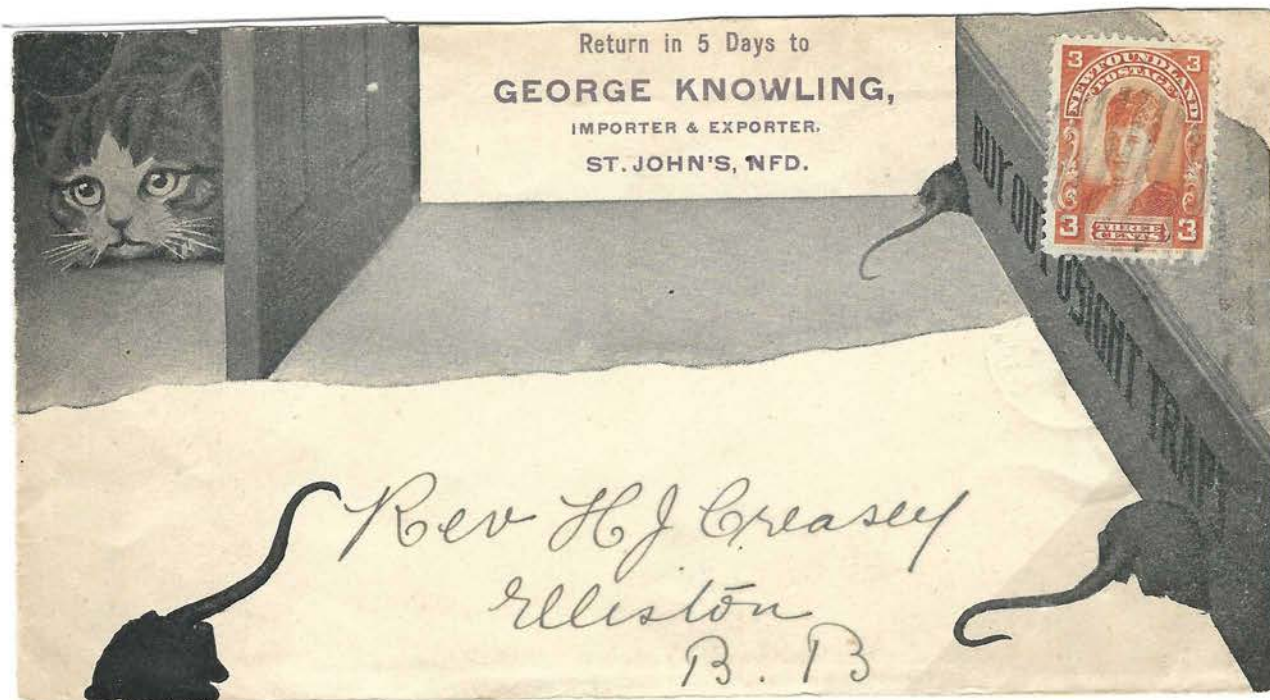 Return in 5 Days to
GEORGE KNOWLING,
IMPORTER & EXPORTER.
ST. JOHN'S, NFD.
3 3
NEWFOUNDLAND
POSTAGE
3 THREE CENTS 3
BUY OUT OSIGHT TRAPS
Rev H J Creasey
Elliston
B. B